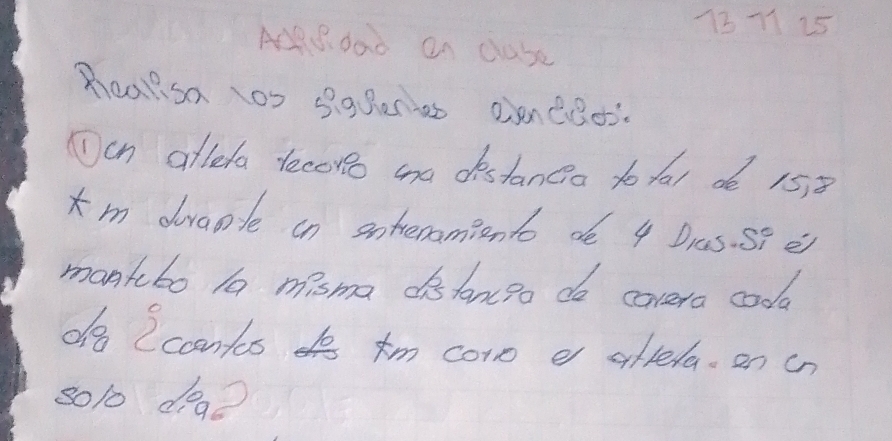 13 11 25
Actividad en clase
Realisa los siguientes ejercicios:
① un atleta recorrio una distancia total de 15,8
km durante un entrenamiento de 4 Dias. Si él
mantubo la misma distancia de carrera cada
dia ¿cuantos km corrio el atleta. en un
solo dia?